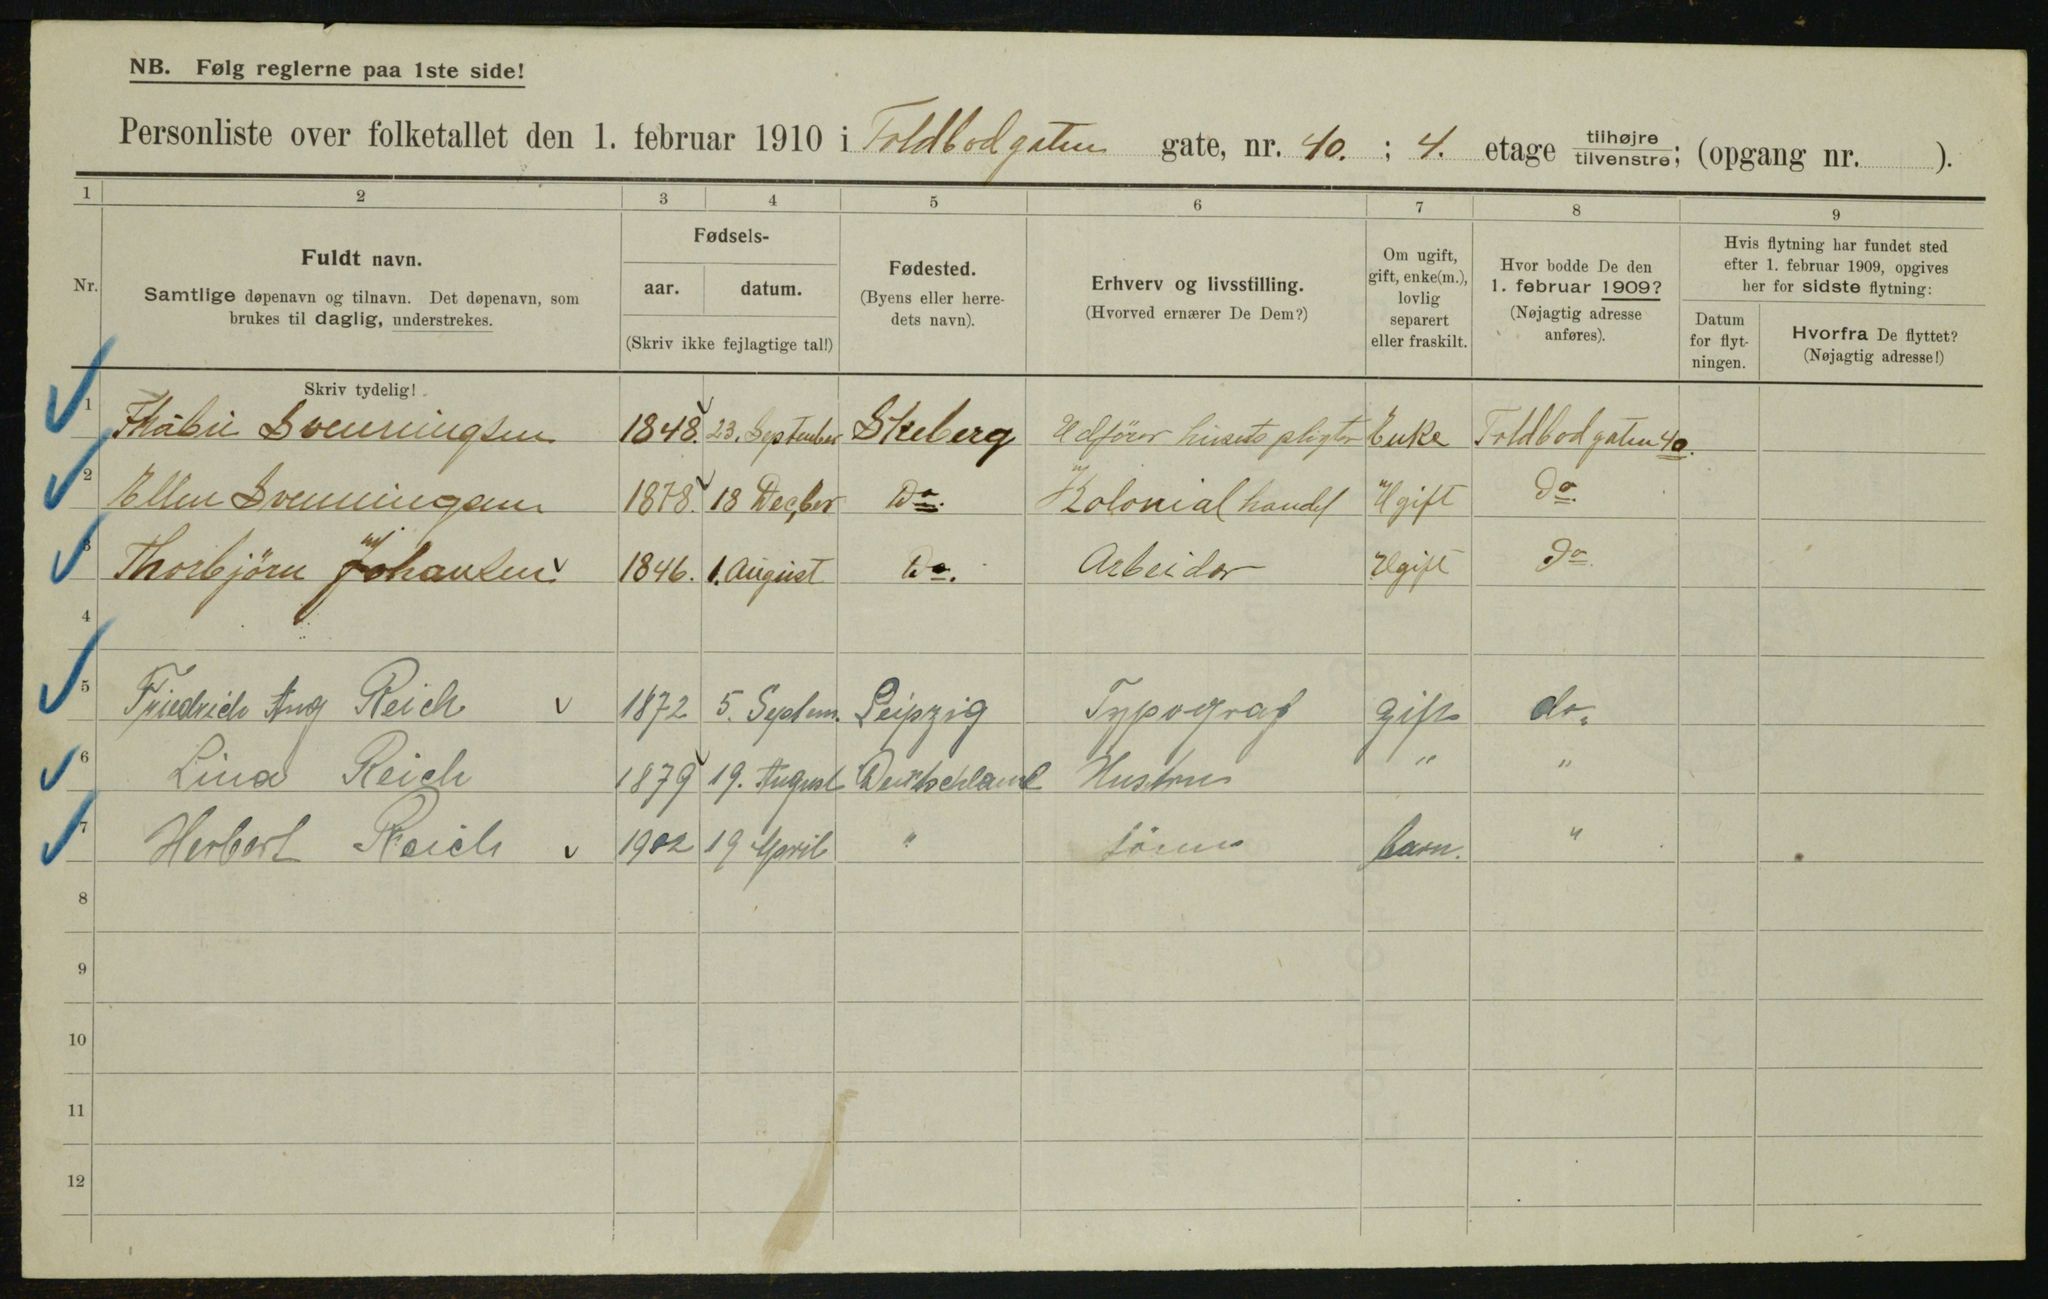 NB. Følg reglerne paa 1ste side!
Personliste over folketallet den 1. februar 1910 i Toldbodgaten gate, nr. 40. ; 4. etage tilhøjre tilvenstre; (opgang nr. ).
1 2 3 4 5 6 7 8 9
Nr.
Fuldt navn.
Samtlige døpenavn og tilnavn. Det døpenavn, som
brukes til daglig, understrekes.
Fødsels-
aar. datum.
(Skriv ikke fejlagtige tal!)
Fødested.
(Byens eller herre-
dets navn).
Erhverv og livsstilling.
(Hvorved ernærer De Dem?)
Om ugift,
gift, enke(m.),
lovlig
separert
eller fraskilt.
Hvor bodde De den
1. februar 1909?
(Nøjagtig adresse
anføres).
Hvis flytning har fundet sted
efter 1. februar 1909, opgives
her for sidste flytning:
Datum
for flyt-
ningen.
Hvorfra De flyttet?
(Nøjagtig adresse!)
Skriv tydelig!
1 Svenningsen 1848. 23. September Skeberg Udfører husets pligter Enke Toldbodgaten 40.
2 Ellen Svenningsen 1878. 18 Decber Do. Kolonialhandel Ugift Do.
3 Thorbjörn Johansen 1846. 1. August Do. Arbeider Ugift Do.
4
5 Friedrich Aug Reich 1872 5. Septem. Leipzig Typograf gift do.
6 Lina Reich 1879 19. August Deutschland Hustru " "
7 Herbert Reich 1902 19 April " sönn barn. "
8
9
10
11
12